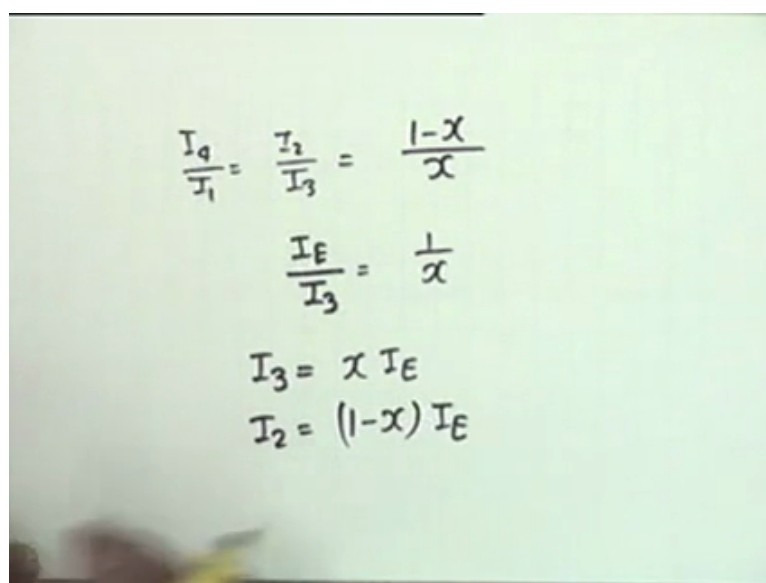 I4/I1 = I2/I3 = 1-x/x
IE/I3 = 1/x
I3 = x IE
I2 = (1-x) IE